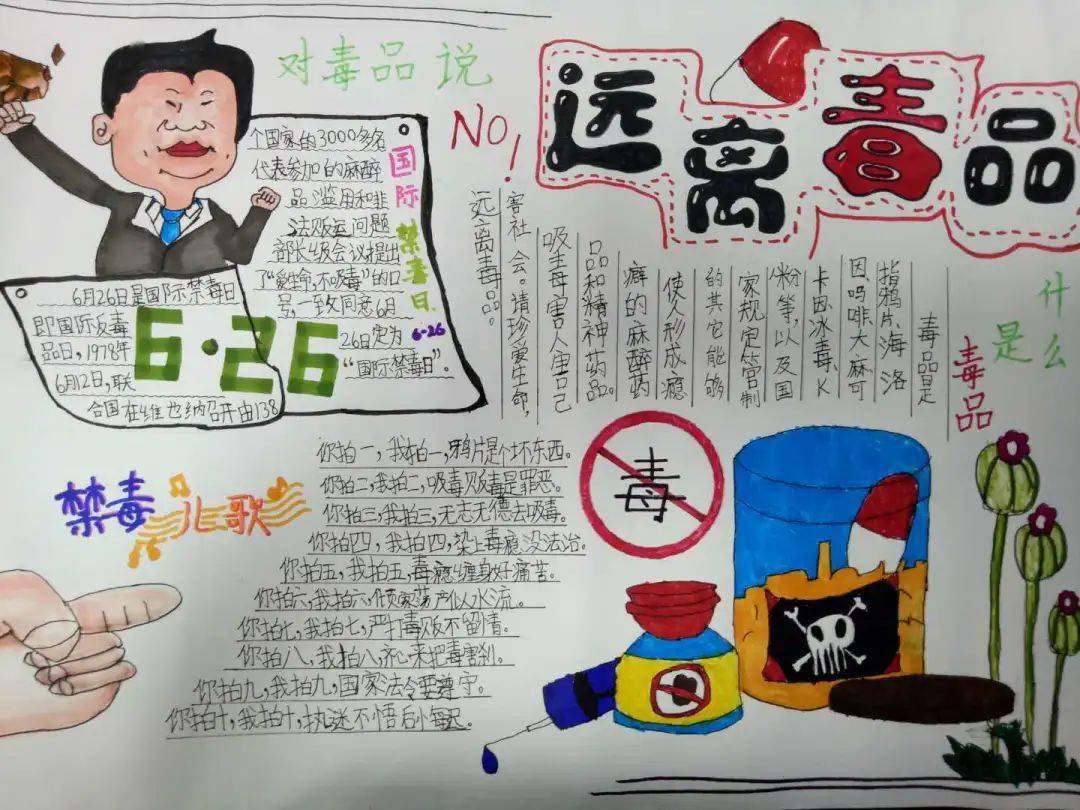 远离毒品
对毒品说
NO!
6月26日是国际禁毒日
即国际反毒
品日,1978年
6月12日,联
合国在维也纳召开由138
个国家的3000多名
代表参加的麻醉
品滥用和非
法贩运问题
部长级会议提出
了“爱生命,不吸毒”的口
号,一致同意6月
26日定为
“国际禁毒日”。
国际禁毒日
6-26
6·26
什么
是
毒品
毒品是
指鸦片、海洛
因、吗啡、大麻、可
卡因、冰毒、K
粉等,以及国
家规定管制
的其它能够
使人形成瘾
癖的麻醉药
品和精神药品。
吸毒害人害己
害社会。请珍爱生命,
远离毒品。
禁毒儿歌
你拍一,我拍一,鸦片是个坏东西。
你拍二,我拍二,吸毒贩毒是罪恶。
你拍三,我拍三,无志无德去吸毒。
你拍四,我拍四,染上毒瘾没法治。
你拍五,我拍五,毒瘾缠身好痛苦。
你拍六,我拍六,倾家荡产似水流。
你拍七,我拍七,严打毒贩不留情。
你拍八,我拍八,齐心来把毒害刹。
你拍九,我拍九,国家法令要遵守。
你拍十,我拍十,执迷不悟后悔迟。
毒